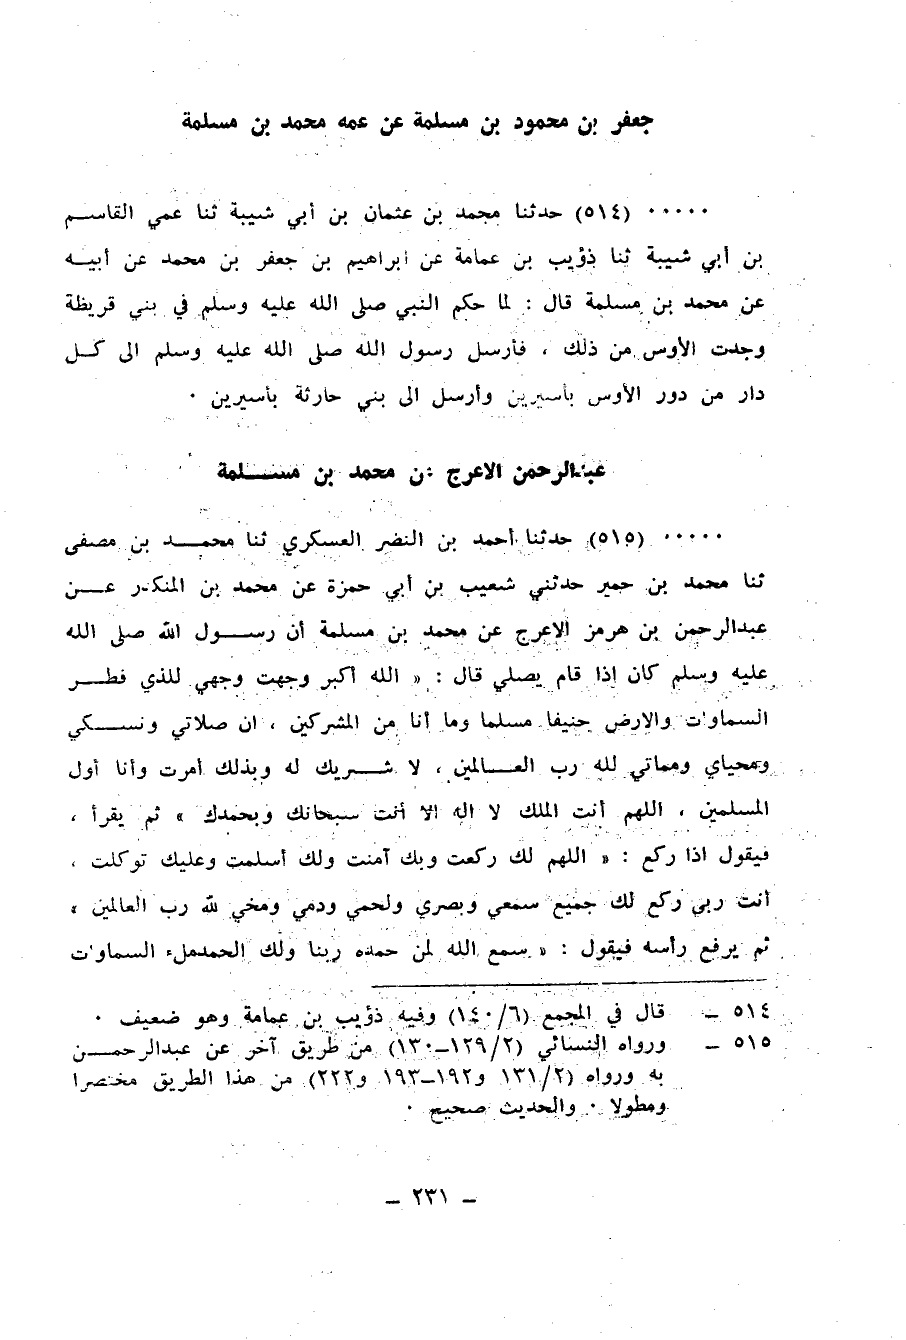 جعفر بن محمود بن مسلمة عن عمه محمد بن مسلمة
٠٠٠٠٠ (٥١٤) حدثنا محمد بن عثمان بن أبي شيبة ثنا عمي القاسم
بن أبي شيبة ثنا ذؤيب بن عمامة عن ابراهيم بن جعفر بن محمد عن أبيه
عن محمد بن مسلمة قال : لما حكم النبي صلى الله عليه وسلم في بني قريظة
وجدت الأوس من ذلك ، فأرسل رسول الله صلى الله عليه وسلم الى كل
دار من دور الأوس بأسيرين وأرسل الى بني حارثة بأسيرين ٠
عبدالرحمن الاعرج عن محمد بن مسلمة
٠٠٠٠٠ (٥١٥) حدثنا أحمد بن النضر العسكري ثنا محمد بن مصفى
ثنا محمد بن حمير حدثني شعيب بن أبي حمزة عن محمد بن المنكدر عن
عبدالرحمن بن هرمز الاعرج عن محمد بن مسلمة أن رسول الله صلى الله
عليه وسلم كان إذا قام يصلي قال : « الله أكبر وجهت وجهي للذي فطر
السماوات والارض حنيفا مسلما وما أنا من المشركين ، ان صلاتي ونسكي
ومحياي ومماتي لله رب العالمين ، لا شريك له وبذلك أمرت وأنا أول
المسلمين ، اللهم أنت الملك لا اله الا أنت سبحانك وبحمدك » ثم يقرأ ،
فيقول اذا ركع : « اللهم لك ركعت وبك آمنت ولك أسلمت وعليك توكلت ،
أنت ربي ركع لك جميع سمعي وبصري ولحمي ودمي ومخي لله رب العالمين »
ثم يرفع رأسه فيقول : « سمع الله لمن حمده ربنا ولك الحمدملء السماوات
٥١٤ ـ قال في المجمع (٦/١٤٠) وفيه ذؤيب بن عمامة وهو ضعيف ٠
٥١٥ ـ ورواه النسائي (٢/١٢٩ـ١٣٠) من طريق آخر عن عبدالرحمن
به ورواه (٢/١٣١ و١٩٢ـ١٩٣ و٢٢٢) من هذا الطريق مختصرا
ومطولا ٠ والحديث صحيح ٠
ـ ٢٣١ ـ